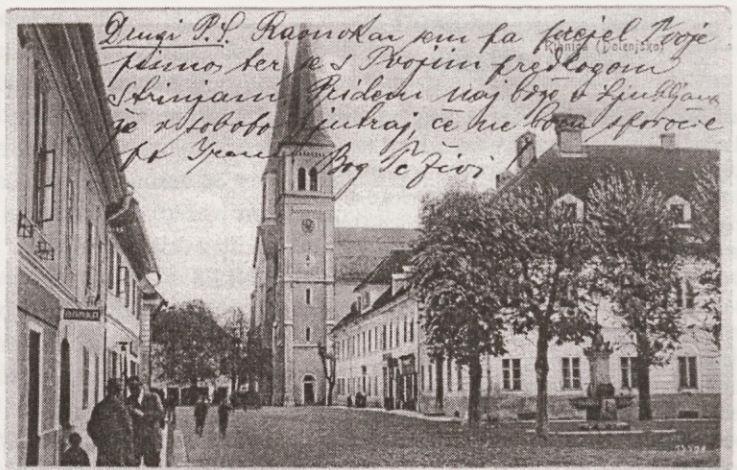 Drugi P.S. Ravnokar sem pa prejel Tvoje
pismo ter se s Tvojim predlogom
strinjam. Pridem naj brže v Ljubljano
že v soboto zjutraj, če ne bom sporočil
po Bog Te živi!
Ribnica (Dolenjsko)
BANKA